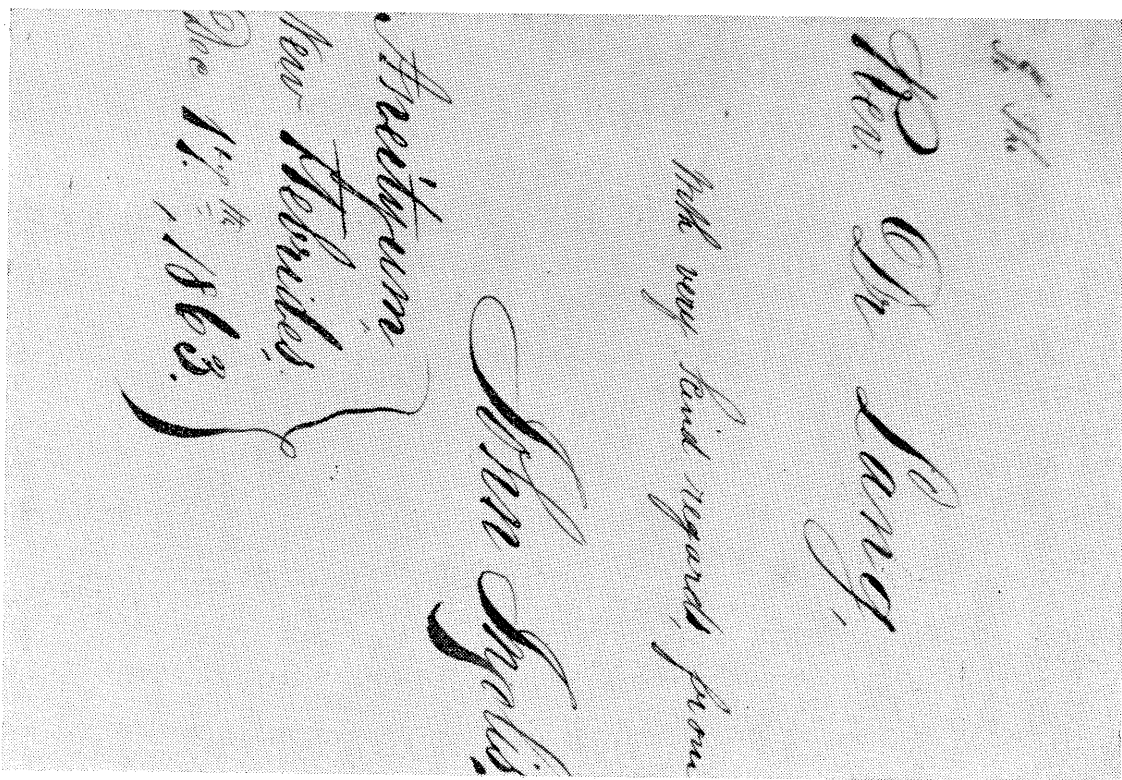 Rev. Dr Lang,
With very kind regards, from
John Inglis.
Aneityum,
New Hebrides.
Dec 17th, 1863.